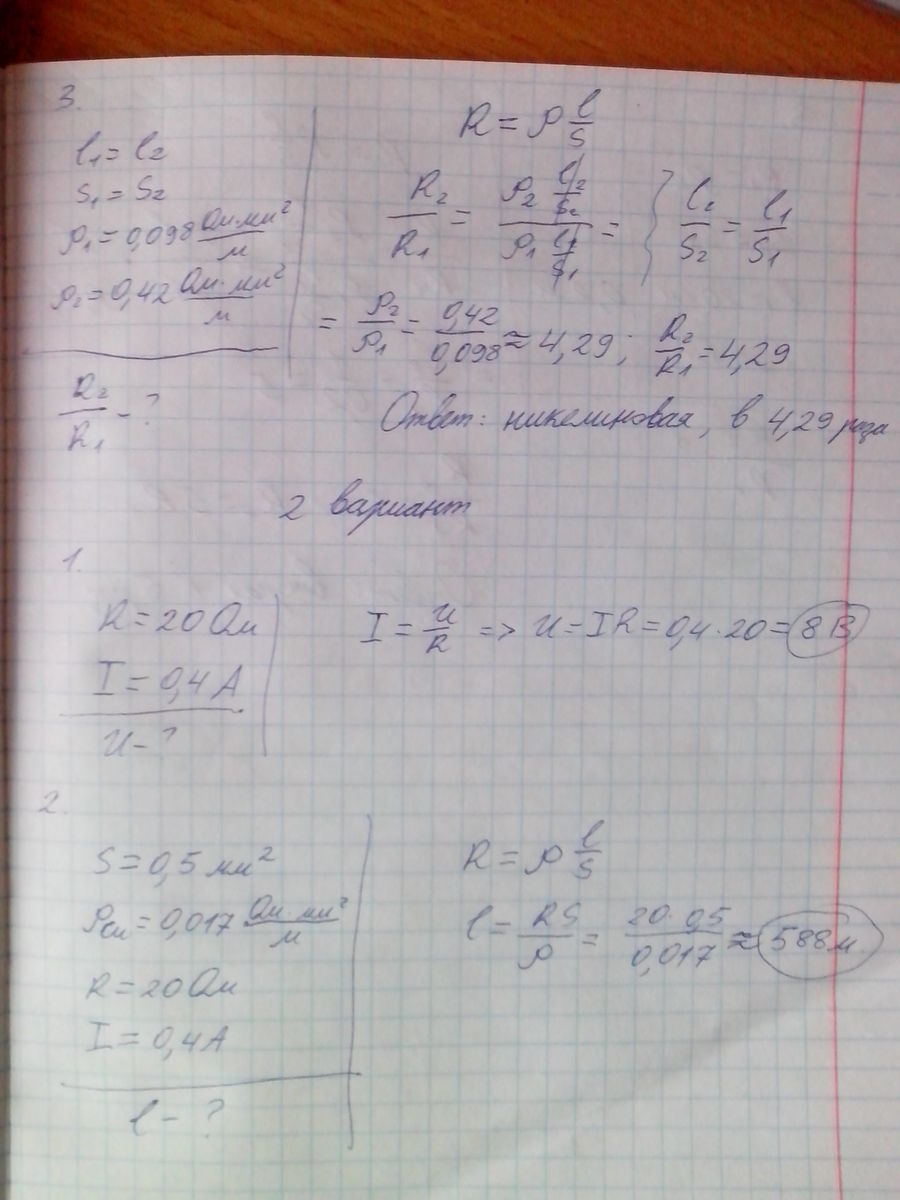 3.
l₁ = l₂
S₁ = S₂
ρ₁ = 0,098 Ом·мм²/м
ρ₂ = 0,42 Ом·мм²/м
R₂/R₁ - ?
R = ρ l/S
R₂/R₁ = (ρ₂ l₂/S₂)/(ρ₁ l₁/S₁) = } l₂/S₂ = l₁/S₁
= ρ₂/ρ₁ = 0,42/0,098 ≈ 4,29; R₂/R₁ = 4,29
Ответ: никелиновая, в 4,29 раза
2 вариант
1.
R = 20 Ом
I = 0,4 А
U - ?
I = U/R => U = IR = 0,4·20 = 8 В
2.
S = 0,5 мм²
ρсм = 0,017 Ом мм²/м
R = 20 Ом
I = 0,4 А
l - ?
R = ρ l/S
l = RS/ρ = 20·0,5/0,017 ≈ 588 м